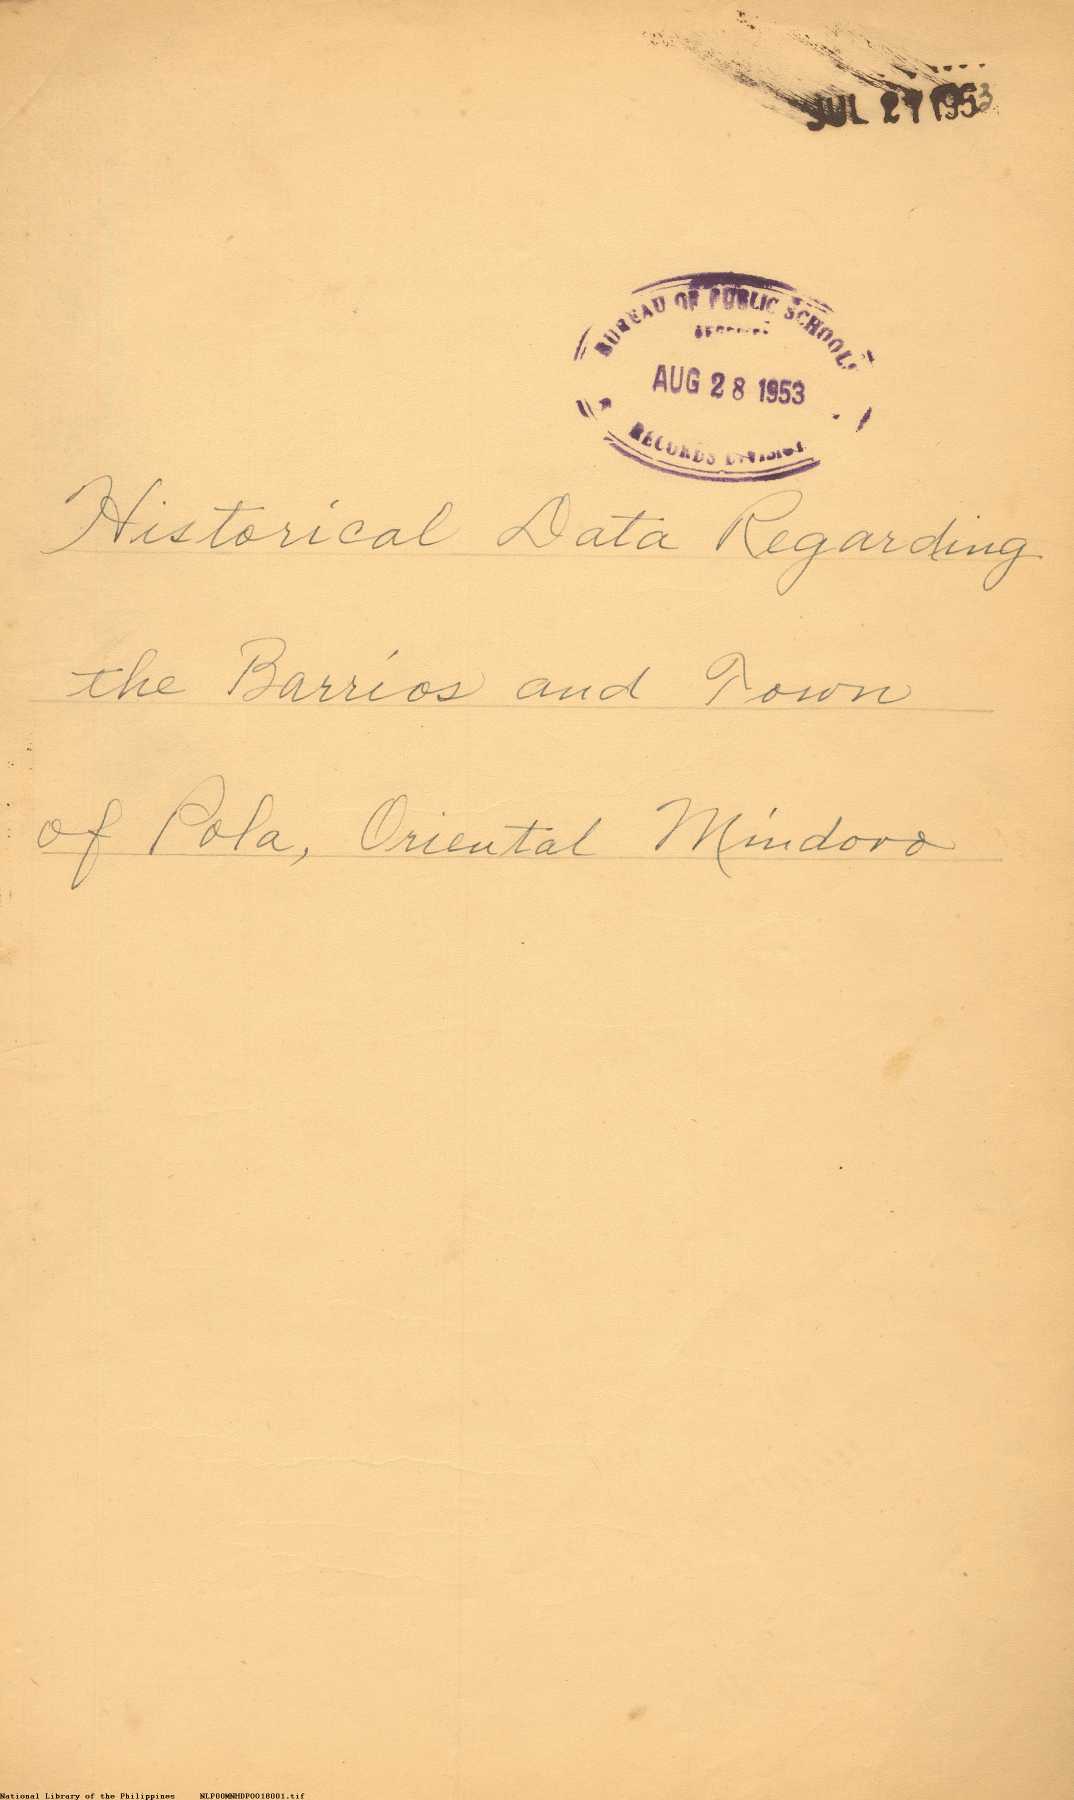 JUL 27 1953
BUREAU OF PUBLIC SCHOOLS
AUG 28 1953
RECORDS DIVISION
Historical Data Regarding
the Barrios and Town
of Pola, Oriental Mindoro
National Library of the Philippines NLP00MNHDP0018001.tif